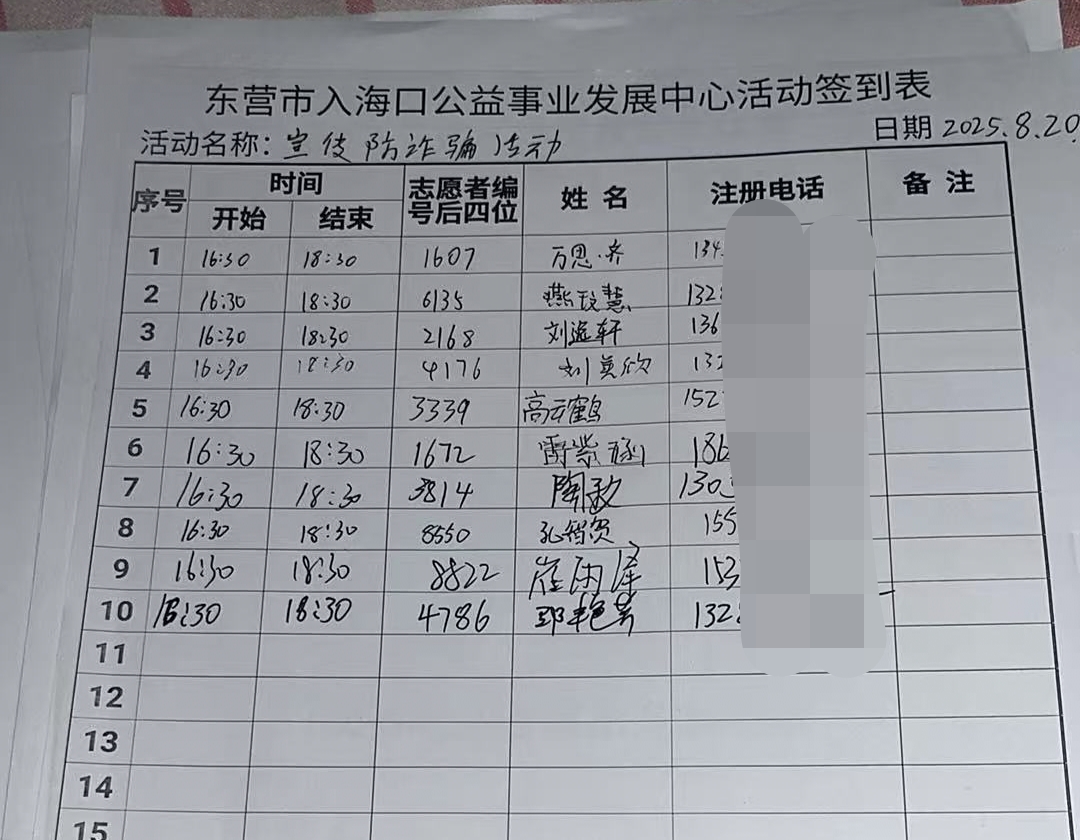 东营市入海口公益事业发展中心活动签到表
活动名称：宣传防诈骗活动 日期 2025.8.20
序号 时间 志愿者编号后四位 姓名 注册电话 备注
开始 结束
1 16:30 18:30 1607 万思齐 134
2 16:30 18:30 6135 燕慧 132
3 16:30 18:30 2168 刘逸轩 136
4 16:30 18:30 4176 刘奠欣 132
5 16:30 18:30 3339 高云鹤 152
6 16:30 18:30 1672 雷紫涵 186
7 16:30 18:30 3814 陶敏 130
8 16:30 18:30 8550 孔智贺 155
9 16:30 18:30 8822 崔雨泽 153
10 16:30 18:30 4786 邓艳芳 132
11
12
13
14
15